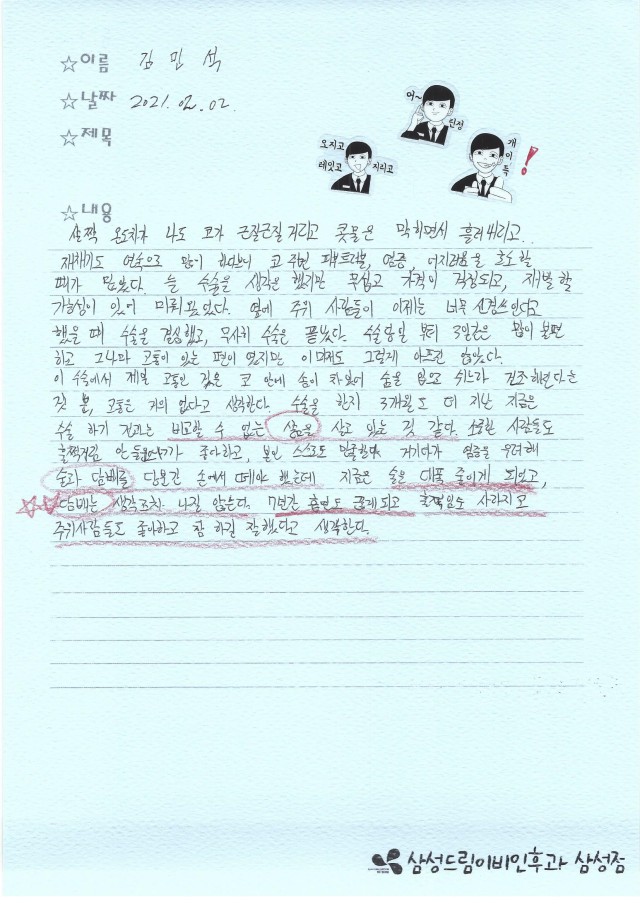 ☆이름 김민석
☆날짜 2021. 02. 02.
☆제목
어~ 인정
오지고 레잇고 지리고
개이득
!
☆내용
살짝 온도차가 나도 코가 근질근질거리고 콧물은 막히면서 흘러내리고..
재채기도 연속으로 많이 하고 주변 피부트러블, 염증, 어지러움을 호소할
때가 많았다. 늘 수술을 생각은 했지만 무섭고 가격이 걱정되고, 재발할
가능성이 있어 미뤄 왔었다. 옆에 주위 사람들이 이제는 너무 신경쓰인다고
했을 때 수술을 결심했고, 무사히 수술은 끝났다. 수술당일 부터 3일간은 많이 불편
하고 그나마 고통이 있는 편이 였지만 이마저도 그렇게 아프진 않았다.
이 수술에서 제일 고통인 것은 코 안에 솜이 차있어 숨을 입으로 쉬느라 건조해진다는
것 뿐, 고통은 거의 없다고 생각한다. 수술을 한지 3개월도 더 지난 지금은
수술 하기 전과는 비교할 수 없는 삶을 살고 있는 것 같다. 소중한 사람들도
훌쩍거림 안 좋아하고, 본인 스스로도 만족한다. 거기다가 염증을 우려해
술과 담배를 다분간 손에서 떼야 했는데 지금은 술은 대폭 줄이게 되었고,
☆☆담배는 생각조차 나질 않는다. 7년간 흡연도 끊게되고 훌쩍임도 사라지고
주위사람들도 좋아하고 참 하길 잘했다고 생각한다.
삼성드림이비인후과 삼성점